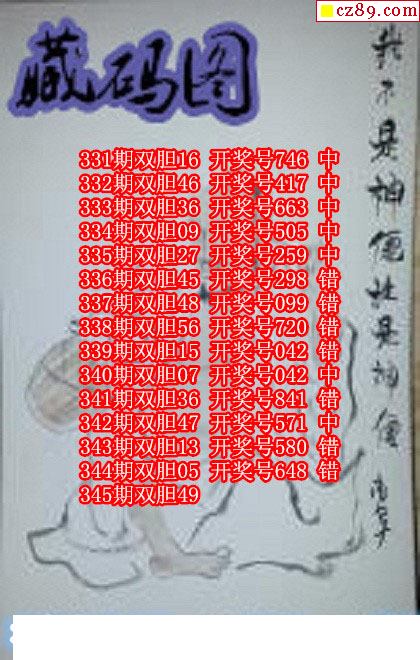 cz89.com
藏码图
331期双胆16 开奖号746 中
332期双胆46 开奖号417 中
333期双胆36 开奖号663 中
334期双胆09 开奖号505 中
335期双胆27 开奖号259 中
336期双胆45 开奖号298 错
337期双胆48 开奖号099 错
338期双胆56 开奖号720 错
339期双胆15 开奖号042 错
340期双胆07 开奖号042 中
341期双胆36 开奖号841 错
342期双胆47 开奖号571 中
343期双胆13 开奖号580 错
344期双胆05 开奖号648 错
345期双胆49
我不是神仙
是神仙